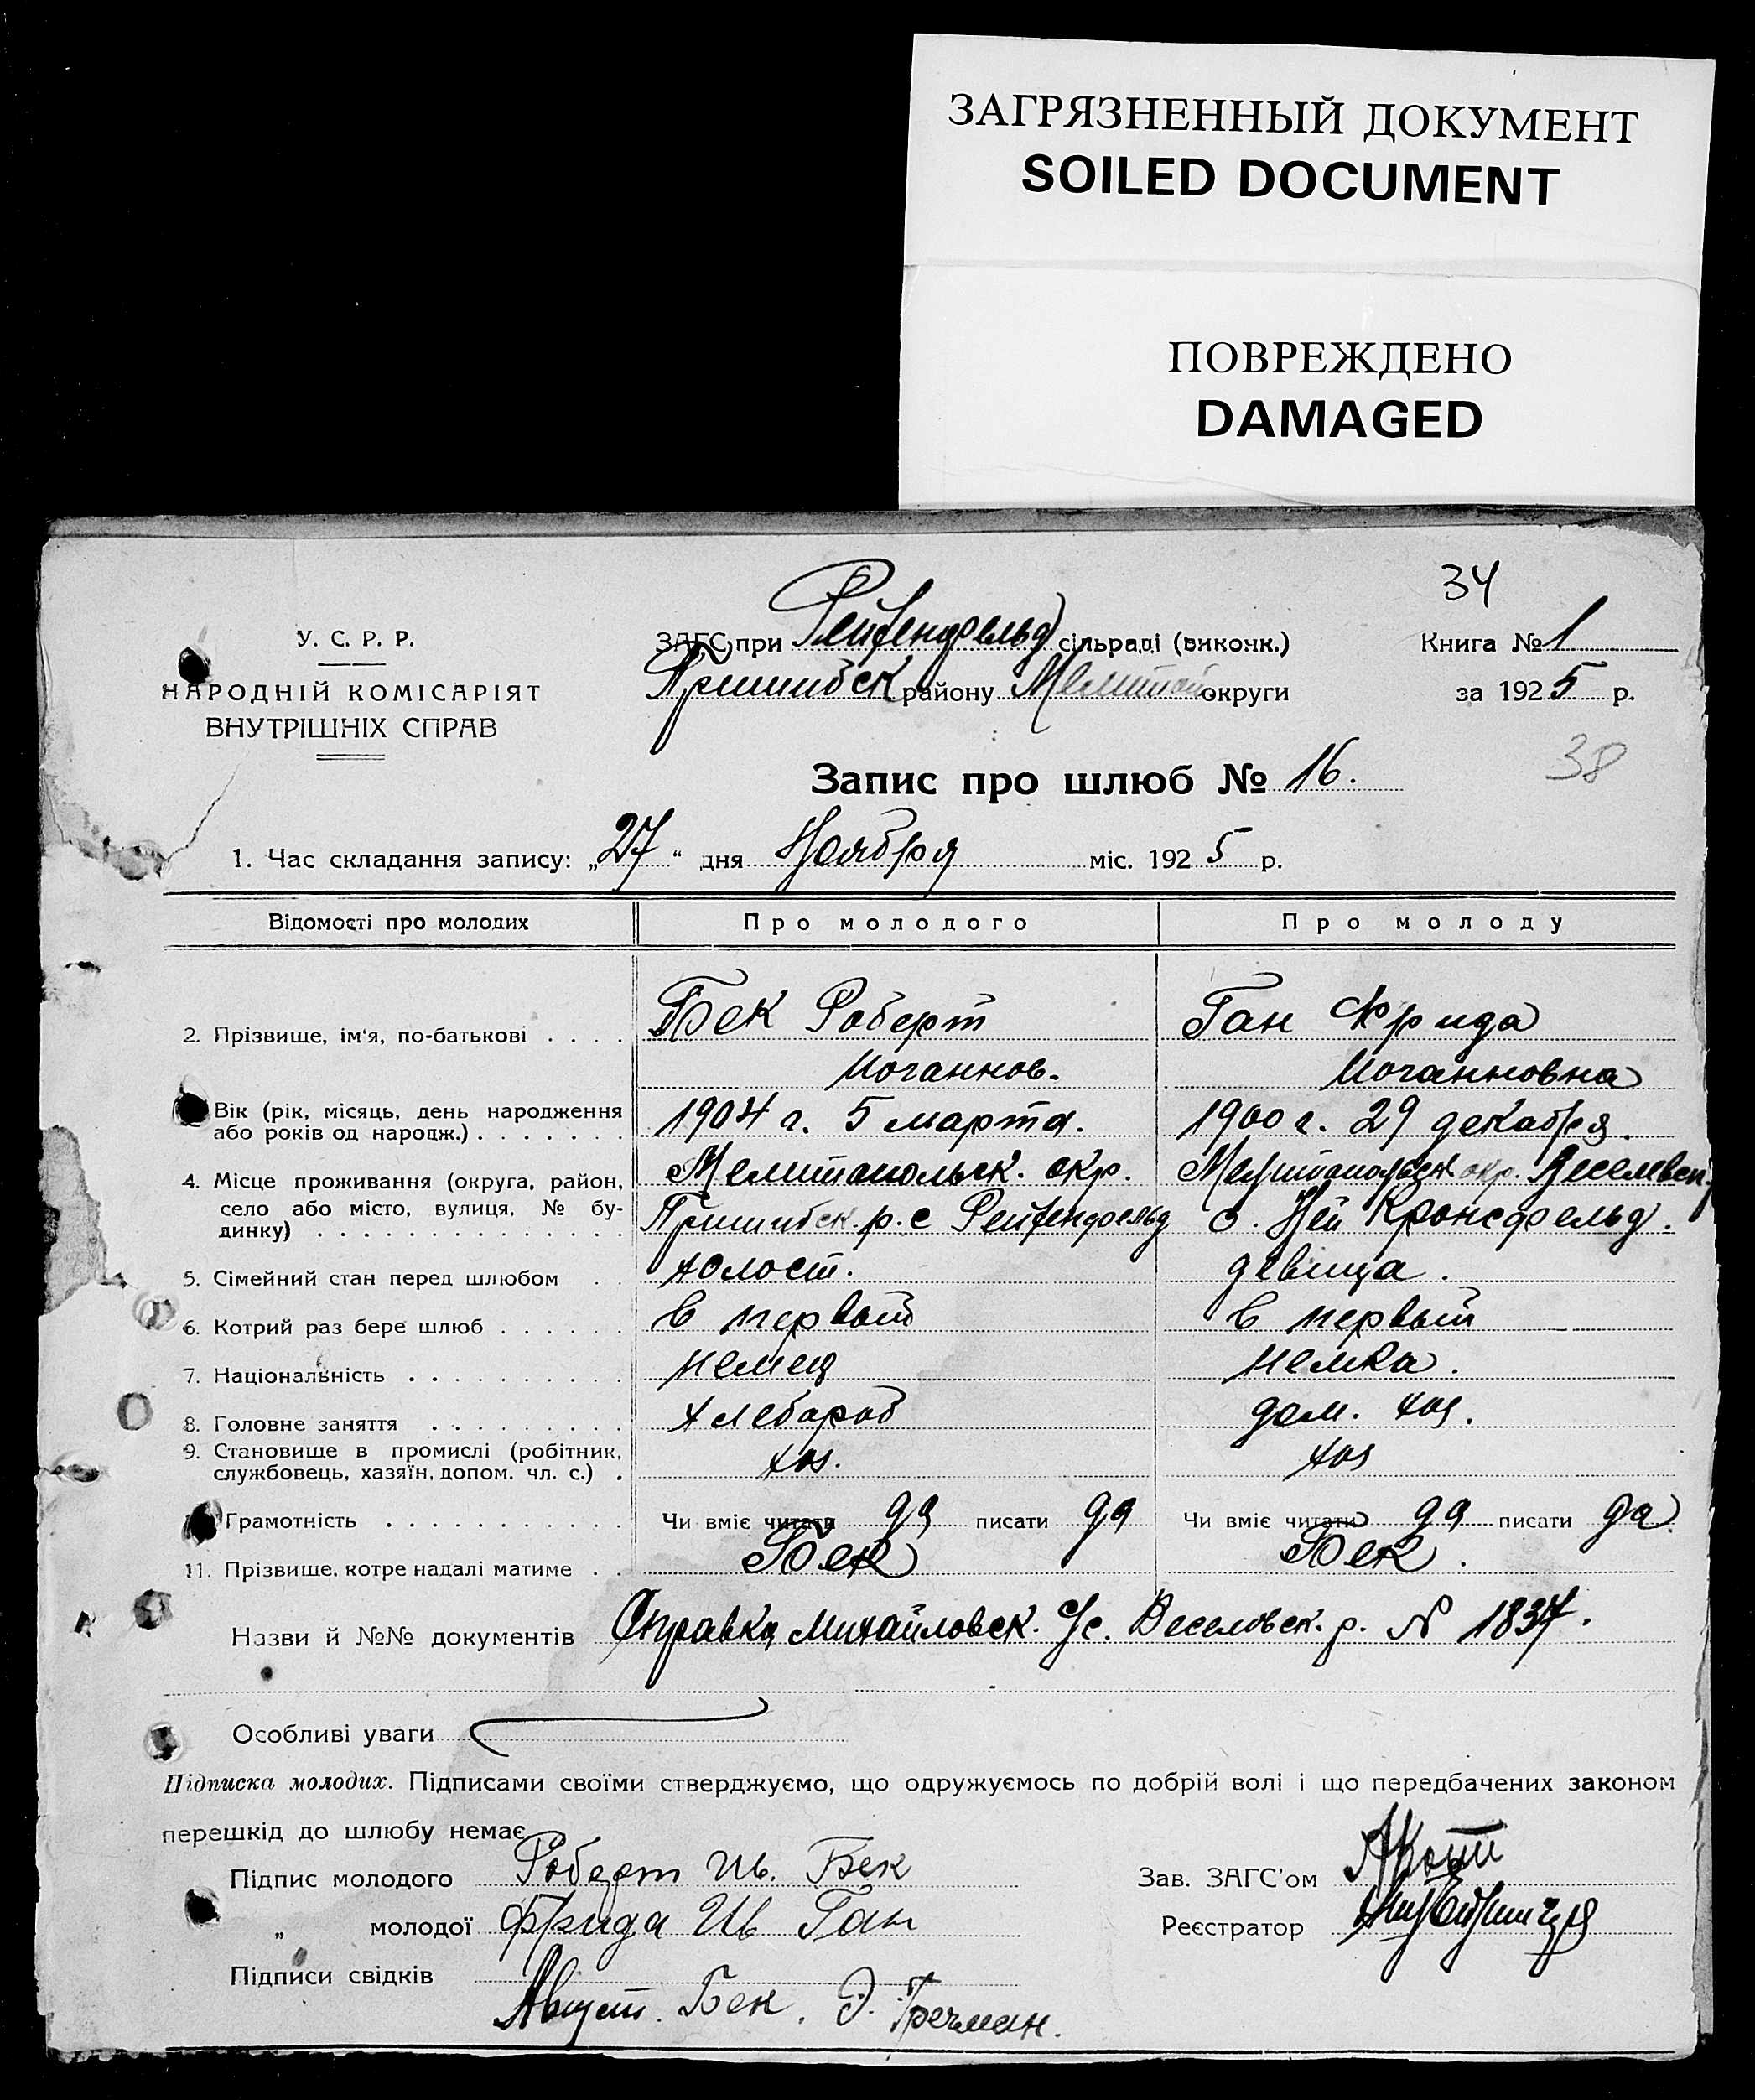 ЗАГРЯЗНЕННЫЙ ДОКУМЕНТ
SOILED DOCUMENT
ПОВРЕЖДЕНО
DAMAGED
34
У. С. Р. Р.
НАРОДНІЙ КОМІСАРІЯТ
ВНУТРІШНІХ СПРАВ
ЗАГС при Рейхенфельд сільраді (виконк.)
Пришибск району Мелитоп округи
Книга № 1
за 1925 р.
38
Запис про шлюб № 16.
1. Час складання запису: „27“ дня Ноября міс. 1925 р.
Відомості про молодих Про молодого Про молоду
2. Прізвище, ім'я, по-батькові . . . . Бек Роберт Ган Фрида
Иоганнов. Иоганновна
Вік (рік, місяць, день народження 1904 г. 5 марта. 1900 г. 29 декабря.
або років од народж.) . . . . . . .
4. Місце проживання (округа, район, Мелитопольск. окр. Мелитопольск окр. Веселовск.
село або місто, вулиця, № бу- Пришибск. р. с Рейхенфельд с. Ней Кронсфельд.
динку) . . . . . . . . . . . . . .
5. Сімейний стан перед шлюбом . . холост. девица.
6. Котрий раз бере шлюб . . . . . . в первый в первый
7. Національність . . . . . . . . . . немец немка.
8. Головне заняття . . . . . . . . . хлебороб дом. хоз.
9. Становище в промислі (робітник, хоз. хоз
службовець, хазяїн, допом. чл. с.) .
Грамотність . . . . . . . . . . . Чи вміє читати да писати да Чи вміє читати да писати да
11. Прізвище, котре надалі матиме . . Бек Бек.
Назви й №№ документів Справка Михайловск. с/с. Веселовск. р. N 1837.
Особливі уваги
Підписка молодих. Підписами своїми стверджуємо, що одружуємось по добрій волі і що передбачених законом
перешкід до шлюбу немає.
Підпис молодого Роберт Ив. Бек
Зав. ЗАГС'ом
„ молодої Фрида Ив Ган
Реєстратор
Підписи свідків
Август. Бек. Э.